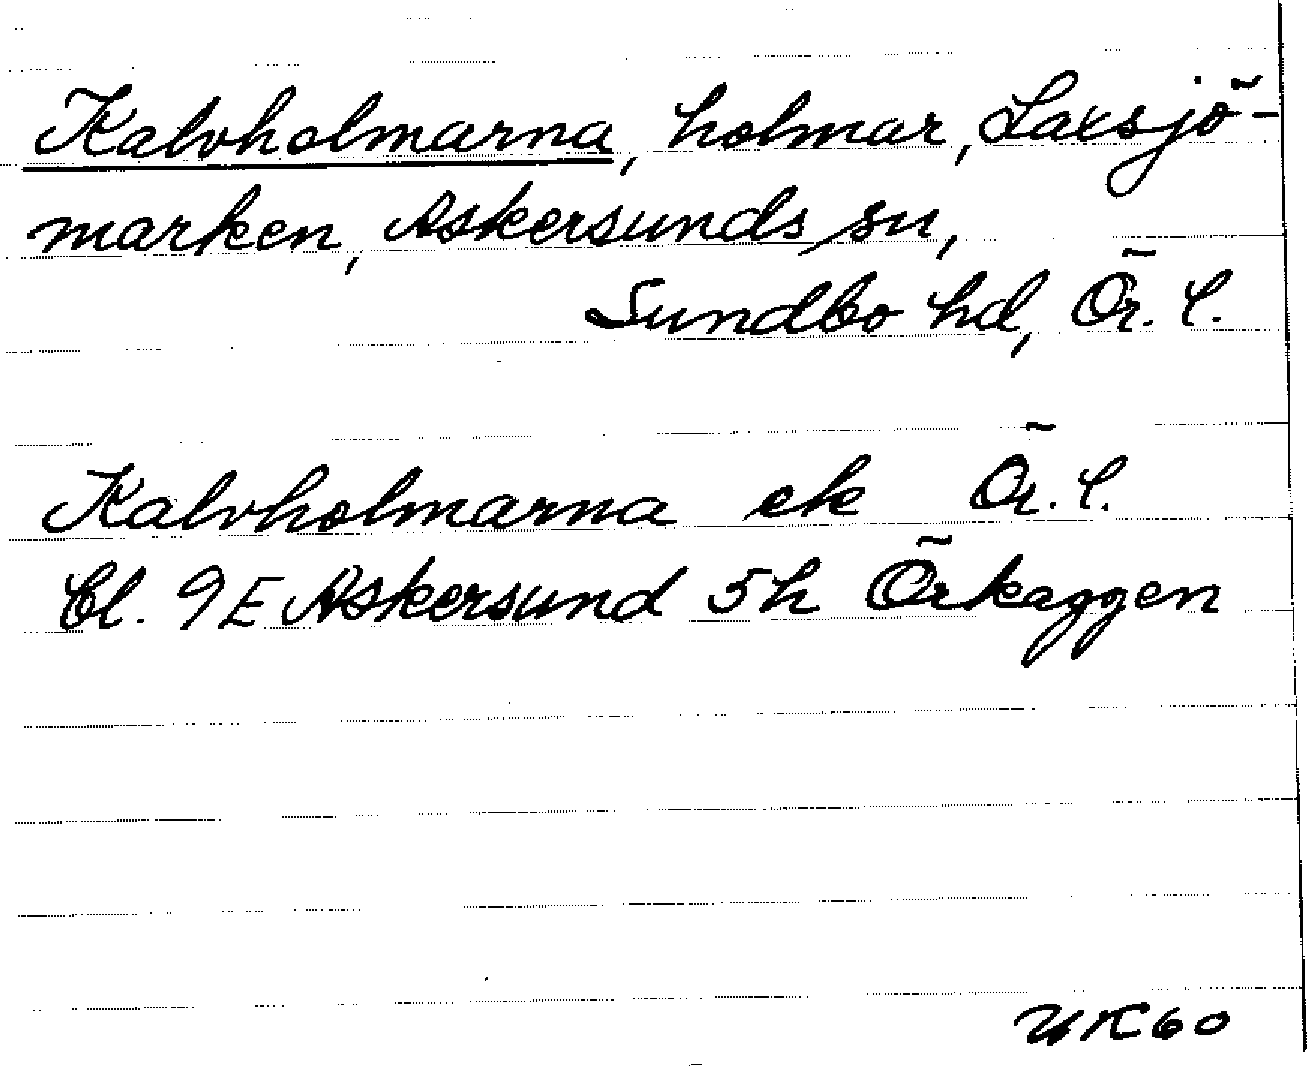 Kalvholmarna, holmar, Laxsjö-
marken, Askersunds sn,
Sundbo hd, Ör. l.
Kalvholmarna ek Ör. l.
Bl. 9E Askersund 5h Örkaggen
UK60